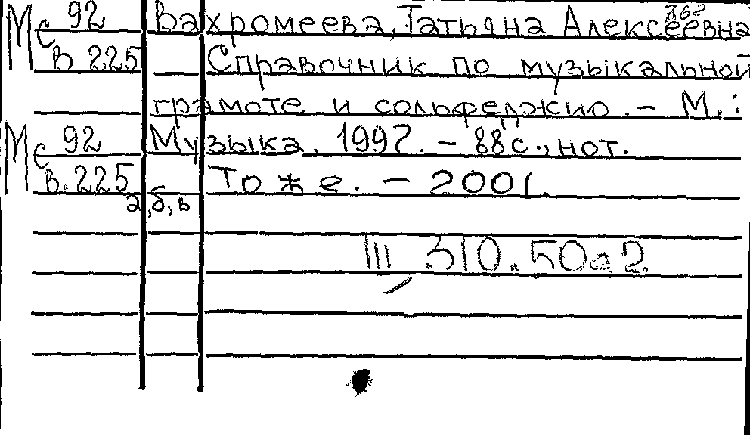 Мс 92 Вахромеева, Татьяна Алексеевна
в 225 Справочник по музыкальной
грамоте и сольфеджио. – М.:
Мс 92 Музыка, 1997. – 88 с., нот.
в. 225 То же. – 2001.
а, б, в
III 310.50а2